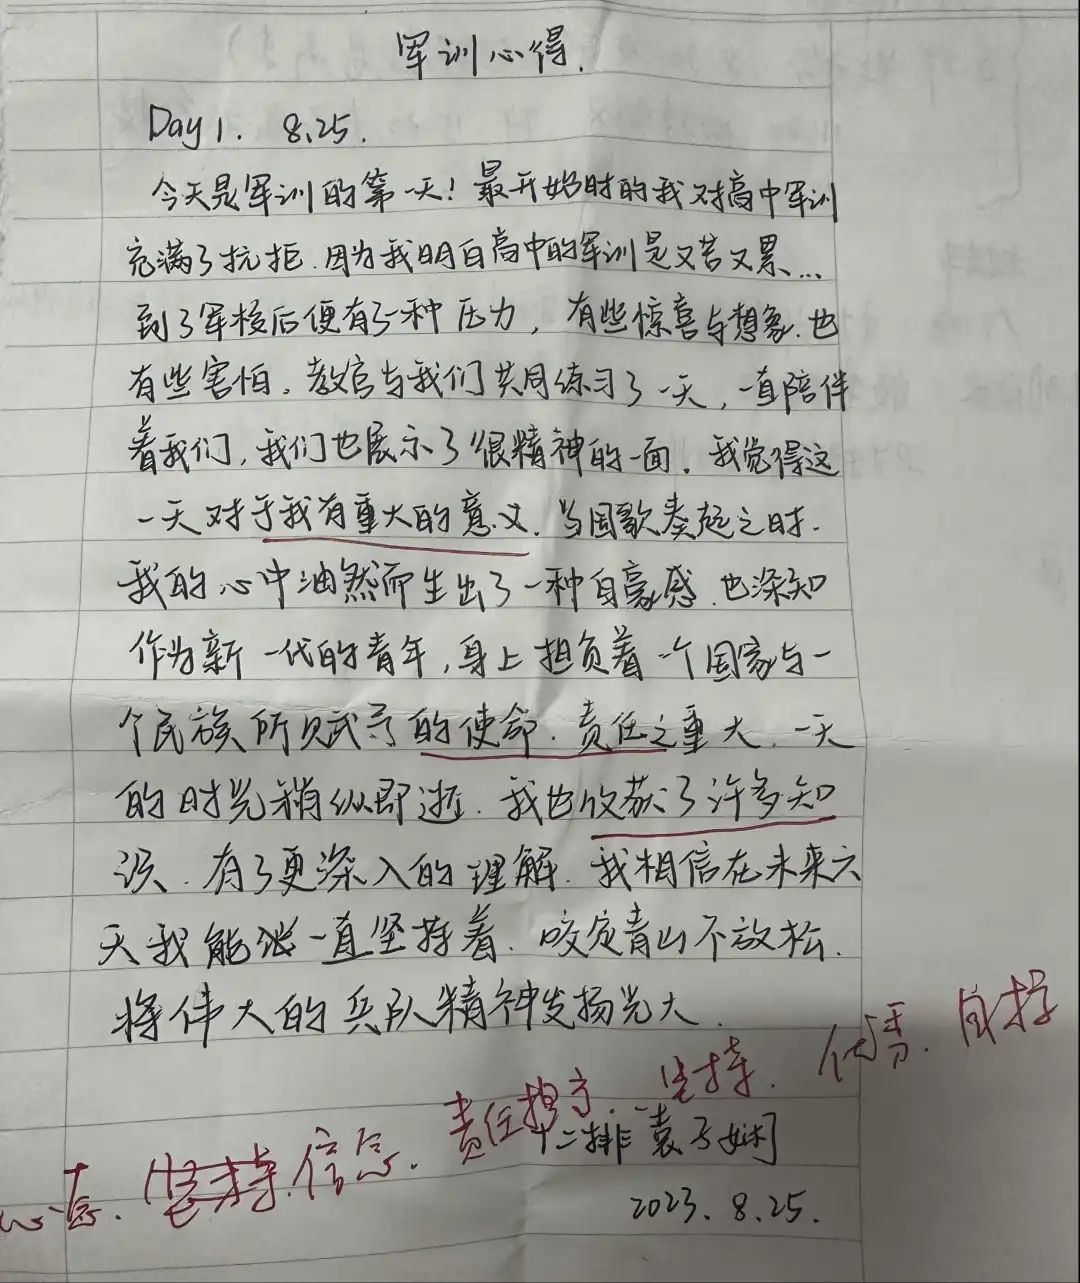 军训心得.
Day 1. 8.25.
今天是军训的第一天！最开始时的我对高中军训
充满了抗拒.因为我明白高中的军训是又苦又累...
到了军校后便有了一种压力，有些惊喜与想象.也
有些害怕.教官与我们共同练习了一天，一直陪伴
着我们，我们也展示了很精神的一面.我觉得这
一天对于我有重大的意义.当国歌奏起之时.
我的心中油然而生出了一种自豪感.也深知
作为新一代的青年，身上担负着一个国家与一
个民族所赋予的使命.责任之重大.一天
的时光稍纵即逝.我也收获了许多知
识.有了更深入的理解.我相信在未来六
天我能够一直坚持着.咬定青山不放松.
将伟大的兵队精神发扬光大.
责任担当.坚持.优秀.
坚持.信念.
十二排 袁子娴
2023.8.25.